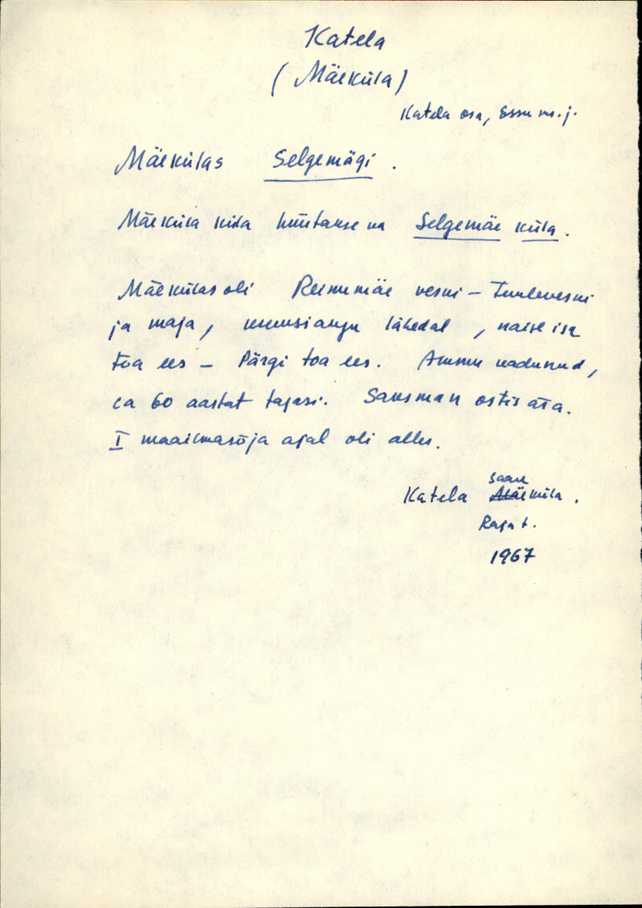 Katela
(Mäeküla)
Katela osa, Essu m.j.
Mäekülas Selgemägi.
Mäeküla küla hüütakse ka Selgemäe küla.
Mäekülas oli Reinumäe veski - Tuuleveski
ja maja, lähedal, naise isa
toa ees - Pärgi toa ees. Ammu kadunud,
ca 60 aastat tagasi. Saksman ostis ära.
I maailmasõja ajal oli alles.
Katela Saare küla.
Raja t.
1967